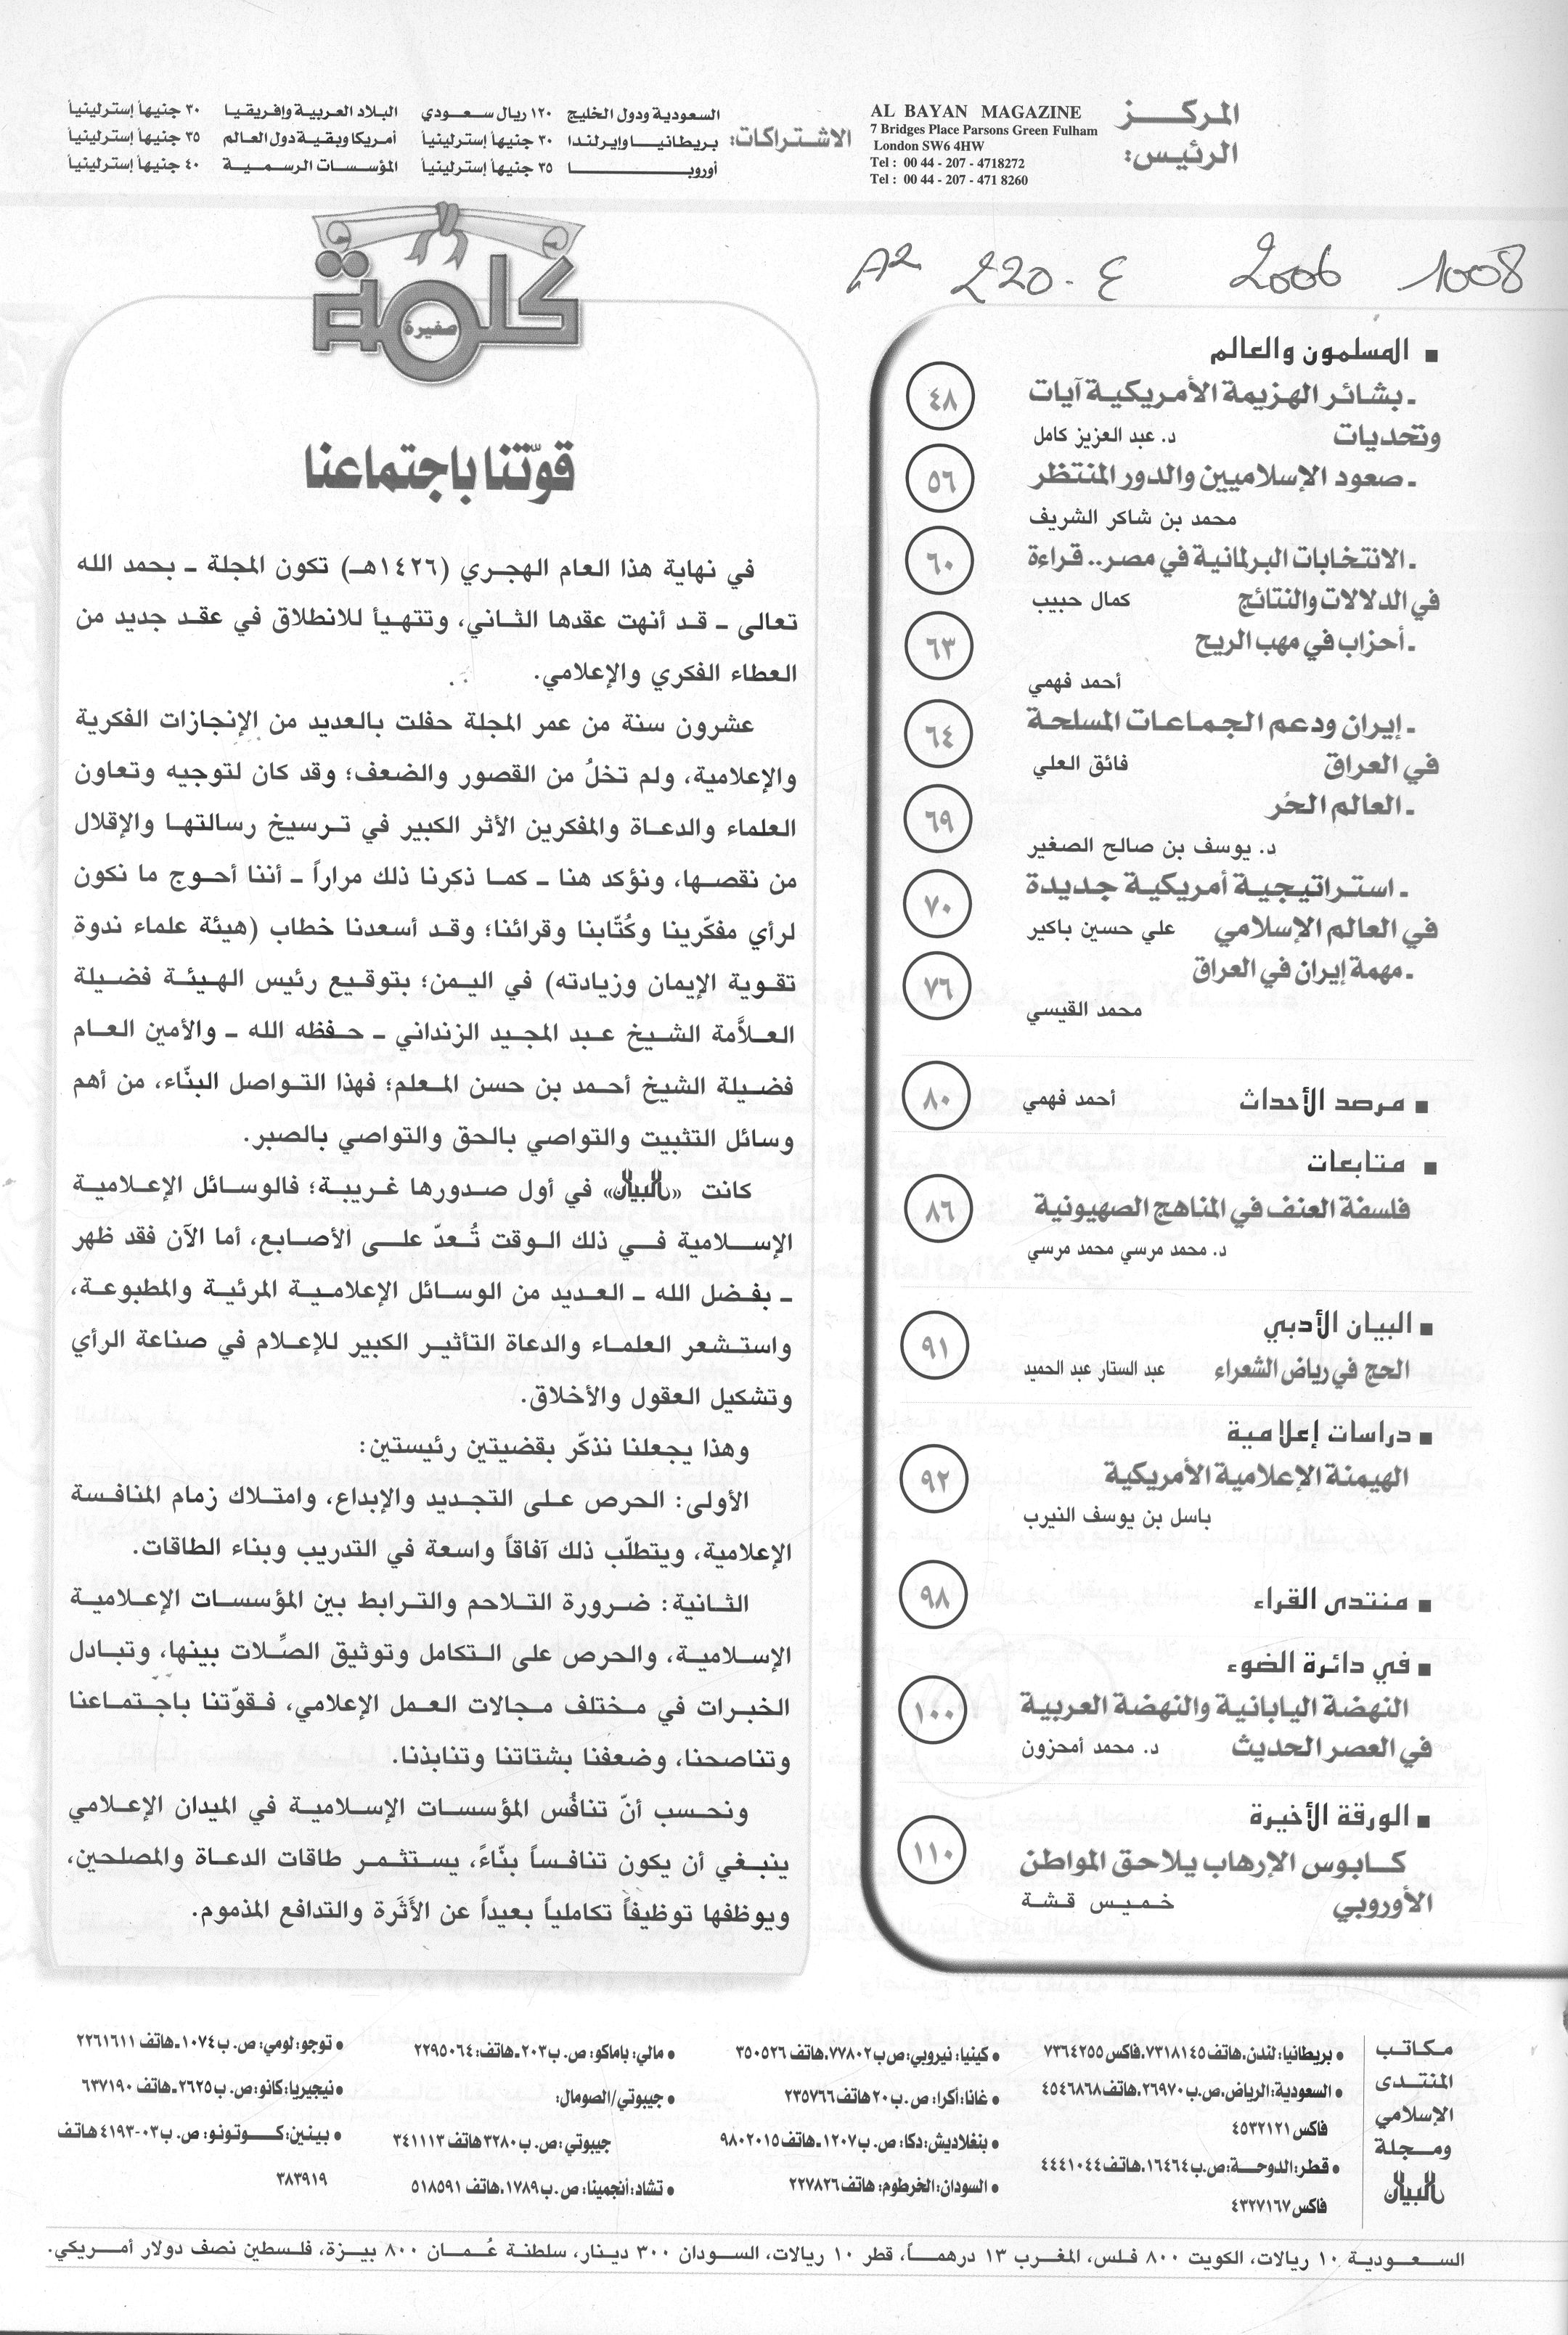 المركز
الرئيس:
AL BAYAN MAGAZINE
7 Bridges Place Parsons Green Fulham
London SW6 4HW
Tel : 00 44 - 207 - 4718272
Tel : 00 44 - 207 - 471 8260
الاشتراكات:
السعودية ودول الخليج ١٢٠ ريال سعودي
بريطانيا وإيرلندا ٣٠ جنيهاً إسترلينياً
أوروبا ٣٥ جنيهاً إسترلينياً
البلاد العربية وإفريقيا ٣٠ جنيهاً إسترلينياً
أمريكا وبقية دول العالم ٣٥ جنيهاً إسترلينياً
المؤسسات الرسمية ٤٠ جنيهاً إسترلينياً
A2 220. ع 2006 1008
■ المسلمون والعالم
ـ بشائر الهزيمة الأمريكية آيات ٤٨
وتحديات د. عبد العزيز كامل
ـ صعود الإسلاميين والدور المنتظر ٥٦
محمد بن شاكر الشريف
ـ الانتخابات البرلمانية في مصر.. قراءة ٦٠
في الدلالات والنتائج كمال حبيب
ـ أحزاب في مهب الريح ٦٣
أحمد فهمي
ـ إيران ودعم الجماعات المسلحة ٦٤
في العراق فائق العلي
ـ العالم الحُر ٦٩
د. يوسف بن صالح الصغير
ـ استراتيجية أمريكية جديدة ٧٠
في العالم الإسلامي علي حسين باكير
ـ مهمة إيران في العراق ٧٦
محمد القيسي
■ مرصد الأحداث أحمد فهمي ٨٠
■ متابعات
فلسفة العنف في المناهج الصهيونية ٨٦
د. محمد مرسي محمد مرسي
■ البيان الأدبي
الحج في رياض الشعراء عبد الستار عبد الحميد ٩١
■ دراسات إعلامية
الهيمنة الإعلامية الأمريكية ٩٢
باسل بن يوسف النيرب
■ منتدى القراء ٩٨
■ في دائرة الضوء
النهضة اليابانية والنهضة العربية ١٠٠
في العصر الحديث د. محمد أمحزون
■ الورقة الأخيرة
كابوس الإرهاب يلاحق المواطن ١١٠
الأوروبي خميس قشة
كلمة
صغيرة
قوّتنا باجتماعنا
في نهاية هذا العام الهجري (١٤٢٦هـ) تكون المجلة ـ بحمد الله
تعالى ـ قد أنهت عقدها الثاني، وتتهيأ للانطلاق في عقد جديد من
العطاء الفكري والإعلامي.
عشرون سنة من عمر المجلة حفلت بالعديد من الإنجازات الفكرية
والإعلامية، ولم تخلُ من القصور والضعف؛ وقد كان لتوجيه وتعاون
العلماء والدعاة والمفكرين الأثر الكبير في ترسيخ رسالتها والإقلال
من نقصها، ونؤكد هنا ـ كما ذكرنا ذلك مراراً ـ أننا أحوج ما نكون
لرأي مفكّرينا وكُتّابنا وقرائنا؛ وقد أسعدنا خطاب (هيئة علماء ندوة
تقوية الإيمان وزيادته) في اليمن؛ بتوقيع رئيس الهيئة فضيلة
العلاَّمة الشيخ عبد المجيد الزنداني ـ حفظه الله ـ والأمين العام
فضيلة الشيخ أحمد بن حسن المعلم؛ فهذا التواصل البنّاء، من أهم
وسائل التثبيت والتواصي بالحق والتواصي بالصبر.
كانت «البيان» في أول صدورها غريبة؛ فالوسائل الإعلامية
الإسلامية في ذلك الوقت تُعدّ على الأصابع، أما الآن فقد ظهر
ـ بفضل الله ـ العديد من الوسائل الإعلامية المرئية والمطبوعة،
واستشعر العلماء والدعاة التأثير الكبير للإعلام في صناعة الرأي
وتشكيل العقول والأخلاق.
وهذا يجعلنا نذكّر بقضيتين رئيستين:
الأولى: الحرص على التجديد والإبداع، وامتلاك زمام المنافسة
الإعلامية، ويتطلّب ذلك آفاقاً واسعة في التدريب وبناء الطاقات.
الثانية: ضرورة التلاحم والترابط بين المؤسسات الإعلامية
الإسلامية، والحرص على التكامل وتوثيق الصِّلات بينها، وتبادل
الخبرات في مختلف مجالات العمل الإعلامي، فقوّتنا باجتماعنا
وتناصحنا، وضعفنا بشتاتنا وتنابذنا.
ونحسب أنّ تنافُس المؤسسات الإسلامية في الميدان الإعلامي
ينبغي أن يكون تنافساً بنّاءً، يستثمر طاقات الدعاة والمصلحين،
ويوظفها توظيفاً تكاملياً بعيداً عن الأَثَرة والتدافع المذموم.
مكاتب
المنتدى
الإسلامي
ومجلة
البيان
● بريطانيا: لندن، هاتف ٧٣١٨١٤٥، فاكس ٧٣٦٤٢٥٥
● السعودية: الرياض، ص.ب ٢٦٩٧٠، هاتف ٤٥٤٦٨٦٨
فاكس ٤٥٣٢١٢١
● قطر: الدوحة: ص.ب ١٦٤٦٤، هاتف ٤٤٤١٠٤٤
فاكس ٤٣٢٧١٦٧
● كينيا: نيروبي: ص ب ٧٧٨٠٢، هاتف ٣٥٠٥٢٦
● غانا: أكرا: ص.ب ٢٠ هاتف ٢٣٥٧٦٦
● بنغلاديش: دكا: ص. ب ١٢٠٧ـ هاتف ٩٨٠٢٠١٥
● السودان: الخرطوم: هاتف ٢٢٧٨٢٦
● مالي: باماكو: ص. ب ٢٠٣ـ هاتف: ٢٢٩٥٠٦٤
● جيبوتي/الصومال:
جيبوتي: ص. ب ٣٢٨٠ هاتف ٣٤١١١٣
● تشاد: أنجمينا: ص. ب ١٧٨٩، هاتف ٥١٨٥٩١
● توجو: لومي: ص. ب ١٠٧٤ـ هاتف ٢٢٦١٦١١
● نيجيريا: كانو: ص. ب ٢٦٢٥ـ هاتف ٦٣٧١٩٠
● بينين: كوتونو: ص. ب ٠٣-٤١٩٣ هاتف
٣٨٣٩١٩
السعودية ١٠ ريالات، الكويت ٨٠٠ فلس، المغرب ١٣ درهماً، قطر ١٠ ريالات، السودان ٣٠٠ دينار، سلطنة عُمان ٨٠٠ بيزة، فلسطين نصف دولار أمريكي.